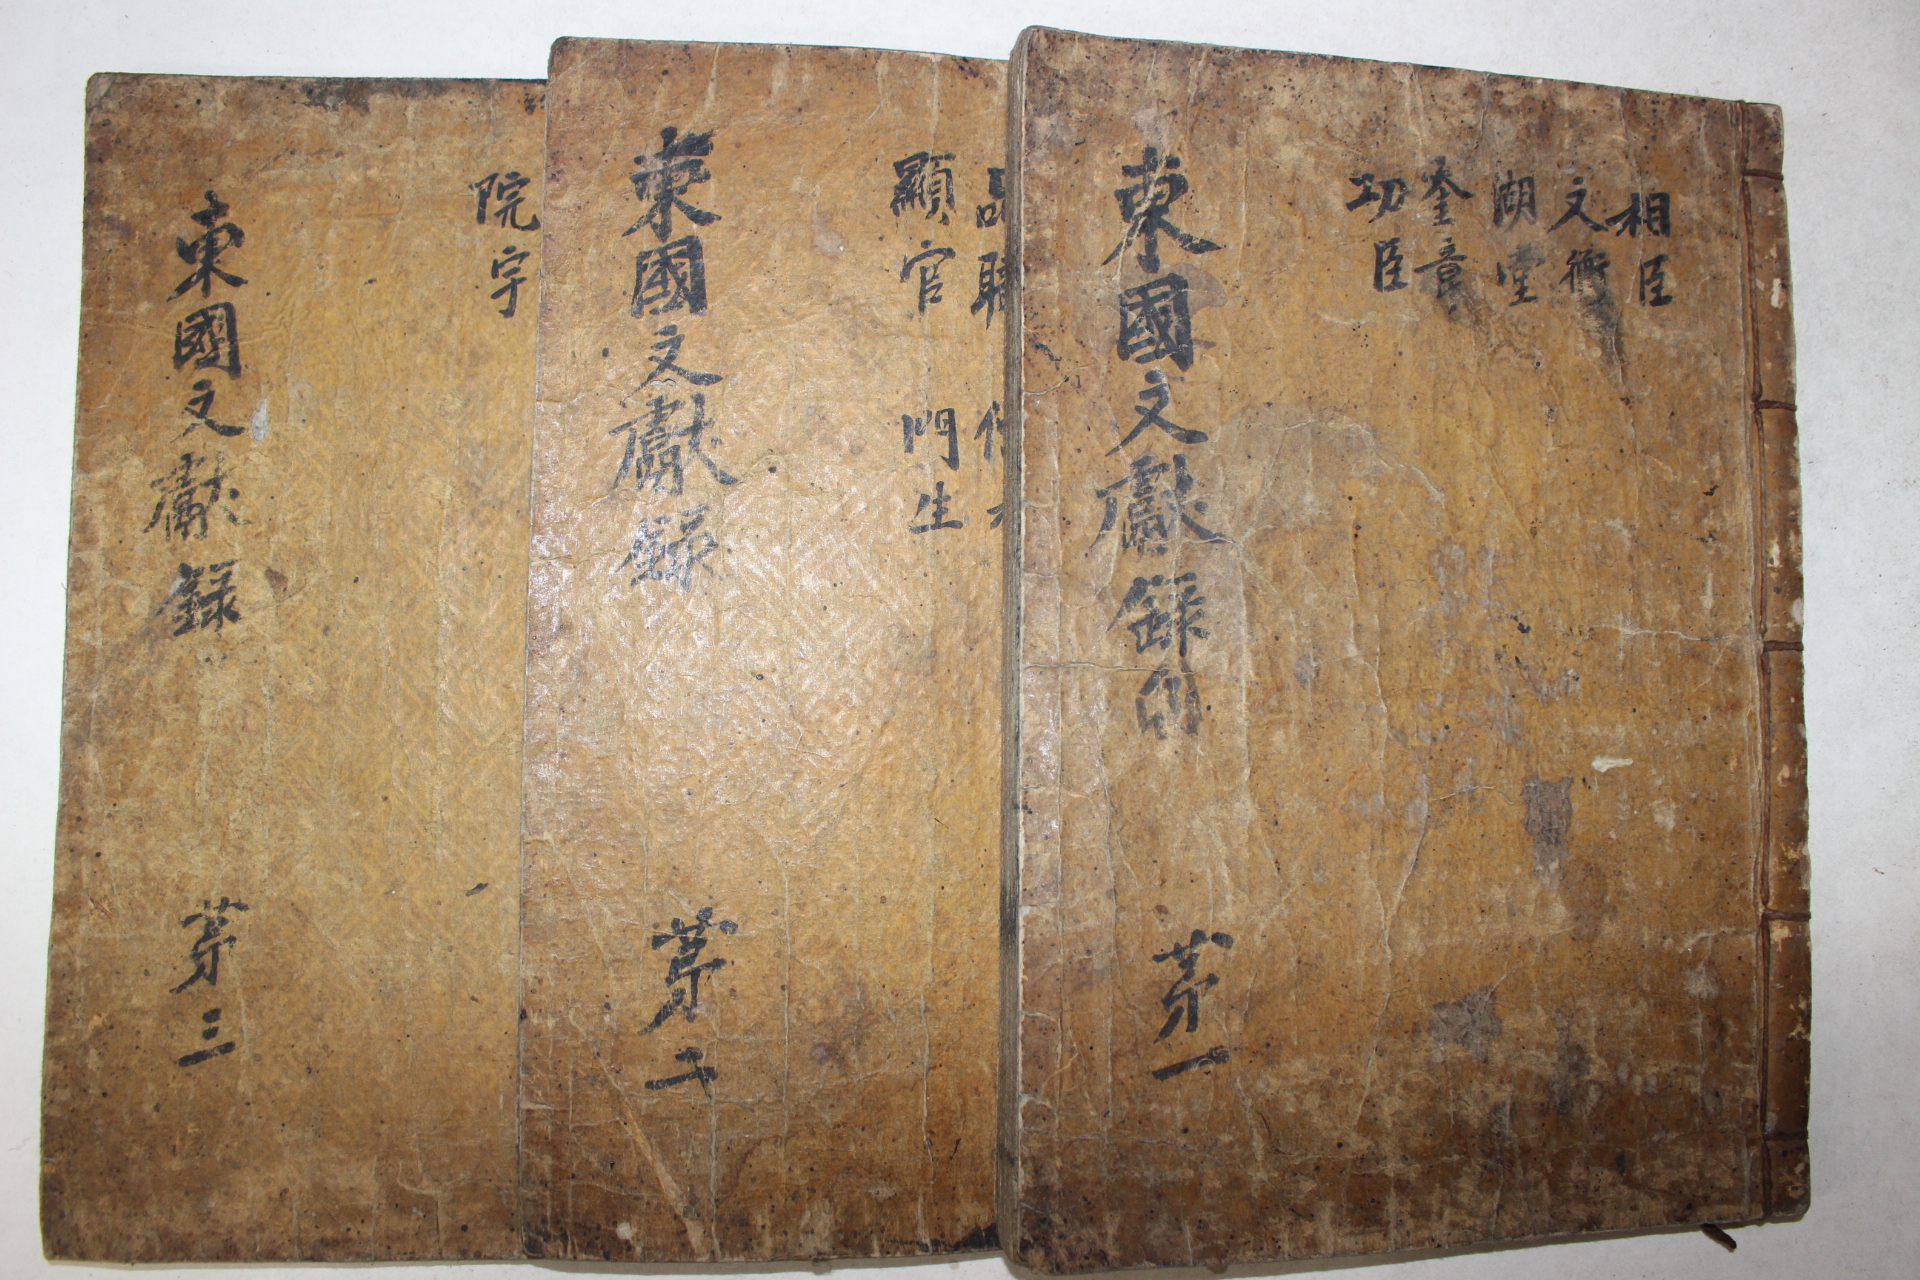 相臣
文衡
湖堂
奎章
功臣
東國文獻錄
苐一
顯官 門生
東國文獻錄
苐二
院宇
東國文獻錄
苐三